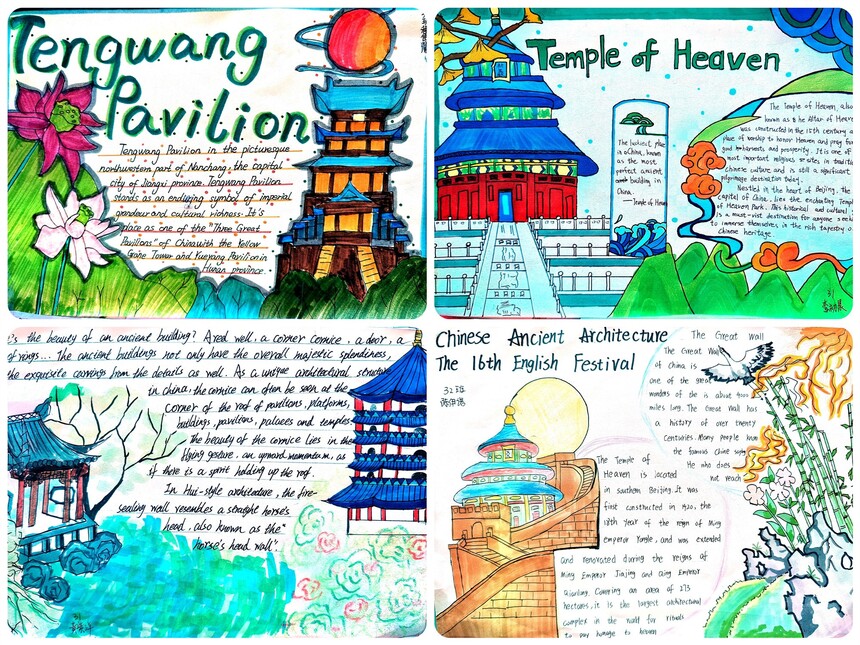 Tengwang
Pavilion
Tengwang Pavilion in the picturesque
northwestern part of Nanchang, the capital
city of Jiangxi province. Tengwang Pavilion
stands as an enduring symbol of imperial
grandeur and cultural richness. It's
place as one of the "Three Great
Pavilions" of China with the Yellow
Crane Tower and Yueyang Pavilion in
Hunan province.
Temple of Heaven
The holiest place
in China, known
as the most
perfect ancient
building in
China.
—Temple of Heaven
The Temple of Heaven, also
known as the Altar of Heaven
was constructed in the 15th century a
place of worship to honor Heaven and pray for
good harvests and prosperity. It is one of
most important religious sites in traditional
Chinese culture and is still a significant
pilgrimage destination today.
Nestled in the heart of Beijing, the
capital of China, lies the enchanting Temple
of Heaven Park. This historical and cultural
is a must-visit destination for anyone
to immerse themselves in the rich tapestry o
Chinese heritage
31
's the beauty of an ancient building? A red well, a corner cornice, a door, a
of rings... The ancient buildings not only have the overall majestic splendiness,
the exquisite carvings from the details as well. As a unique architectural structure
in China, the cornice can often be seen at the
corner of the roof of pavilions, platforms,
buildings, pavilions, palaces and temples
The beauty of the cornice lies in the
flying gesture, an upward momentum, as
if there is a spirit holding up the roof.
In Hui-style architecture, the fire-
sealing wall resembles a straight horse's
head, also known as the"
horse's head wall".
31
Chinese Ancient Architecture
The 16th English Festival
32班
The Great Wall
The Great Wall
of China is
one of the great
wonders of the is about 4000
miles long. The Great Wall has
a history of over twenty
Centuries. Many people know
the famous Chinese saying
He who does
not reach
The Temple of
Heaven is located
in southern Beijing. It was
first constructed in 1420, the
18th year of the reign of Ming
emperor Yongle, and was extended
and renovated during the reigns of
Ming Emperor Jiajing and Qing Emperor
Qianlong. Covering an area of 273
hectares, it is the largest architectural
complex in the world for rituals
to pay homage to heaven